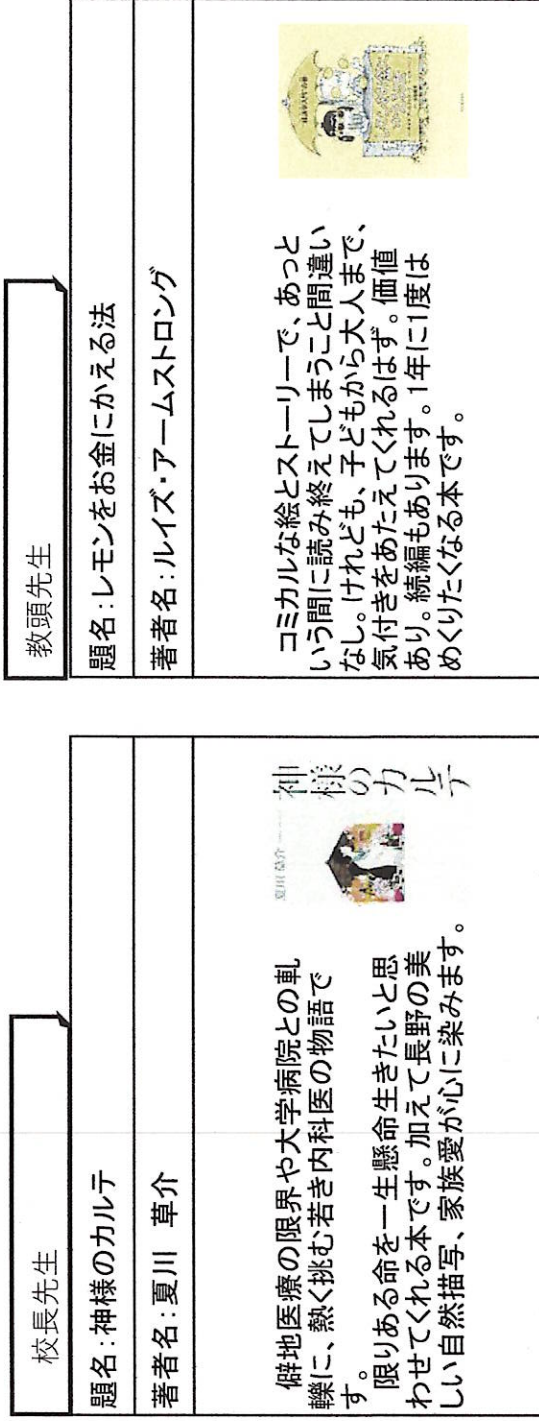 校長先生
題名：神様のカルテ
著者名：夏川 草介
僻地医療の限界や大学病院との軋
轢に、熱く挑む若き内科医の物語で
す。
限りある命を一生懸命生きたいと思
わせてくれる本です。加えて長野の美
しい自然描写、家族愛が心に染みます。
夏川 草介
神様のカルテ
教頭先生
題名：レモンをお金にかえる法
著者名：ルイズ・アームストロング
コミカルな絵とストーリーで、あっと
いう間に読み終えてしまうこと間違い
なし。けれども、子どもから大人まで、
気付きをあたえてくれるはず。価値
あり。続編もあります。1年に1度は
めくりたくなる本です。